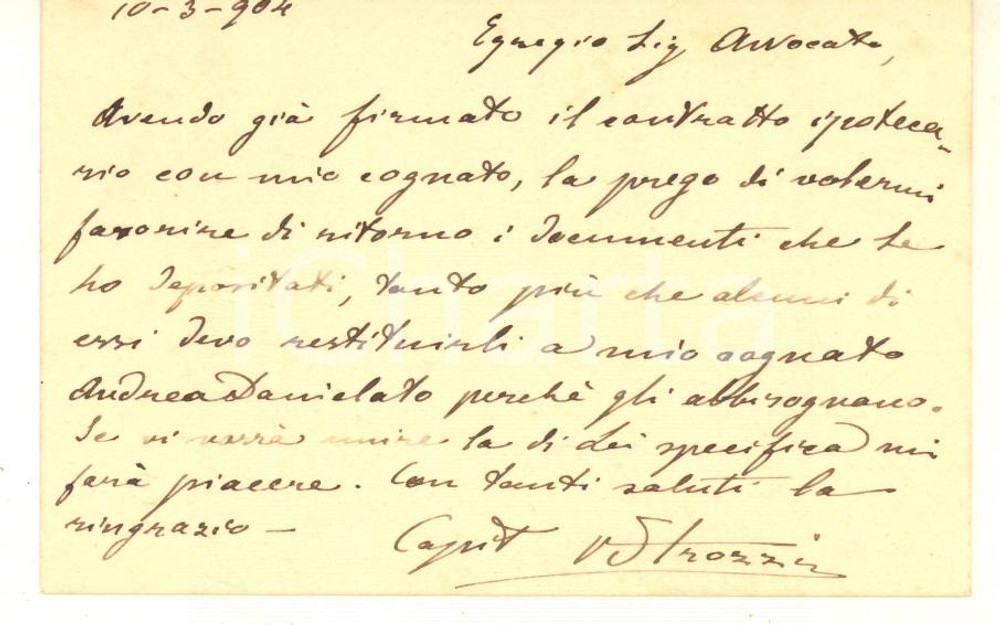 10-3-904
Egregio Sig Avvocato,
Avendo già firmato il contratto ipoteca-
rio con mio cognato, la prego di volermi
favorire di ritorno i documenti che Le
ho depositati, tanto più che alcuni di
essi devo restituirli a mio cognato
Andrea Danielato perchè gli abbisognano.
Se vi vorrà unire la di Lei specifica mi
farà piacere. Con tanti saluti la
ringrazio -
Capit V Strozzi
iCharta